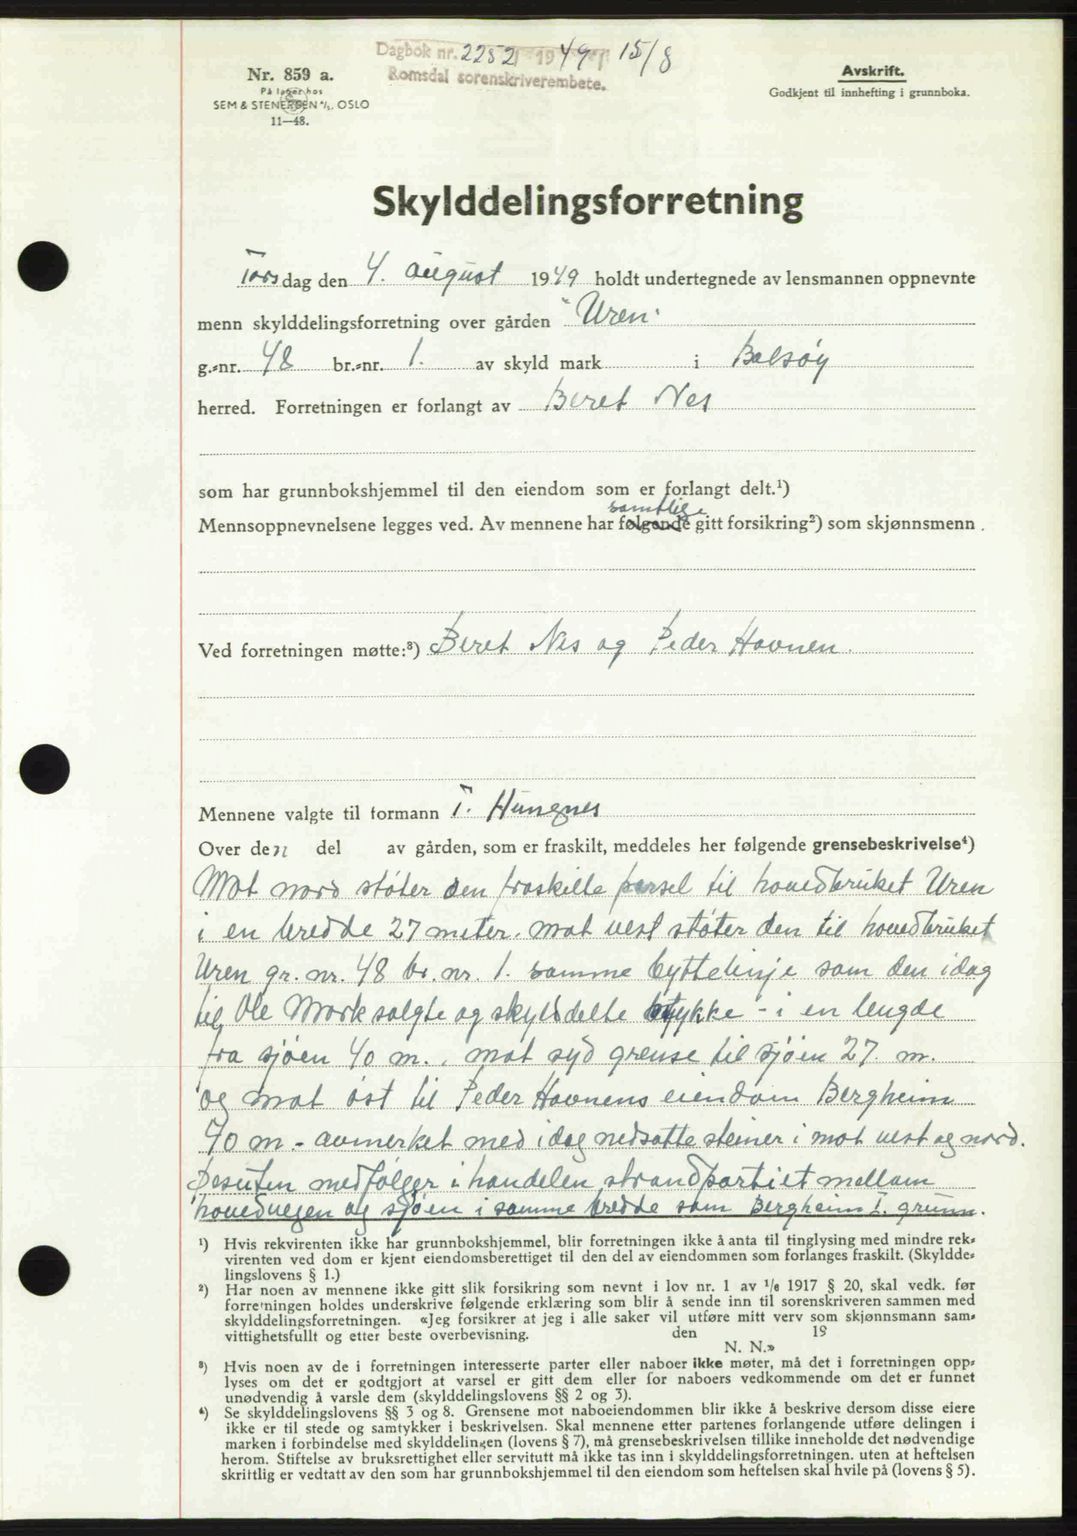 Dagbok nr. 2252 1949 15/8
Romsdal sorenskriverembete.
Nr. 859 a.
På lager hos
SEM & STENERSEN A/S. OSLO
11—48.
Avskrift.
Godkjent til innhefting i grunnboka.
Skylddelingsforretning
Torsdag den 4. august 1949 holdt undertegnede av lensmannen oppnevnte
menn skylddelingsforretning over gården "Uren"
g.-nr. 48 br.-nr. 1. av skyld mark i Bolsøy
herred. Forretningen er forlangt av Beret Nes
som har grunnbokshjemmel til den eiendom som er forlangt delt.¹)
samtlige
Mennsoppnevnelsene legges ved. Av mennene har følgende gitt forsikring²) som skjønnsmenn.
Ved forretningen møtte:³) Beret Nes og Peder Hovnen.
Mennene valgte til formann T. Hungnes
Over den del av gården, som er fraskilt, meddeles her følgende grensebeskrivelse⁴)
Mot nord støter den fraskilte parsel til hovedbruket Uren
i en bredde 27 meter. mot vest støter den til hovedbruket
Uren gr. nr. 48 br. nr. 1. samme byttelinje som den idag
til Ole Mork solgte og skylddelte stykke - i en lengde
fra sjøen 40 m. mot syd grense til sjøen 27. m.
og mot øst til Peder Hovnens eiendom Bergheim
40 m. - avmerket med idag nedsatte steiner i mot vest og nord.
Desuten medfølger i handelen strandpartiet mellom
hovedvegen og sjøen i samme bredde som Bergheim I. grunn.
¹) Hvis rekvirenten ikke har grunnbokshjemmel, blir forretningen ikke å anta til tinglysing med mindre rek-
virenten ved dom er kjent eiendomsberettiget til den del av eiendommen som forlanges fraskilt. (Skyldde-
lingslovens § 1.)
²) Har noen av mennene ikke gitt slik forsikring som nevnt i lov nr. 1 av 1/6 1917 § 20, skal vedk. før
forretningen holdes underskrive følgende erklæring som blir å sende inn til sorenskriveren sammen med
skylddelingsforretningen. «Jeg forsikrer at jeg i alle saker vil utføre mitt verv som skjønnsmann sam-
vittighetsfullt og etter beste overbevisning. den 19
N. N.»
³) Hvis noen av de i forretningen interesserte parter eller naboer ikke møter, må det i forretningen opp-
lyses om det er godtgjort at varsel er gitt dem eller for naboers vedkommende om det er funnet
unødvendig å varsle dem (skylddelingslovens §§ 2 og 3).
⁴) Se skylddelingslovens §§ 3 og 8. Grensene mot naboeiendommen blir ikke å beskrive dersom disse eiere
ikke er til stede og samtykker i beskrivelsen. Skal mennene etter partenes forlangende utføre delingen i
marken i forbindelse med skylddelingen (lovens § 7), må grensebeskrivelsen tillike inneholde det nødvendige
herom. Stiftelse av bruksrettighet eller servitutt må ikke tas inn i skylddelingsforretningen. uten at heftelsen
skriftlig er vedtatt av den som har grunnbokshjemmel til den eiendom som heftelsen skal hvile på (lovens § 5).